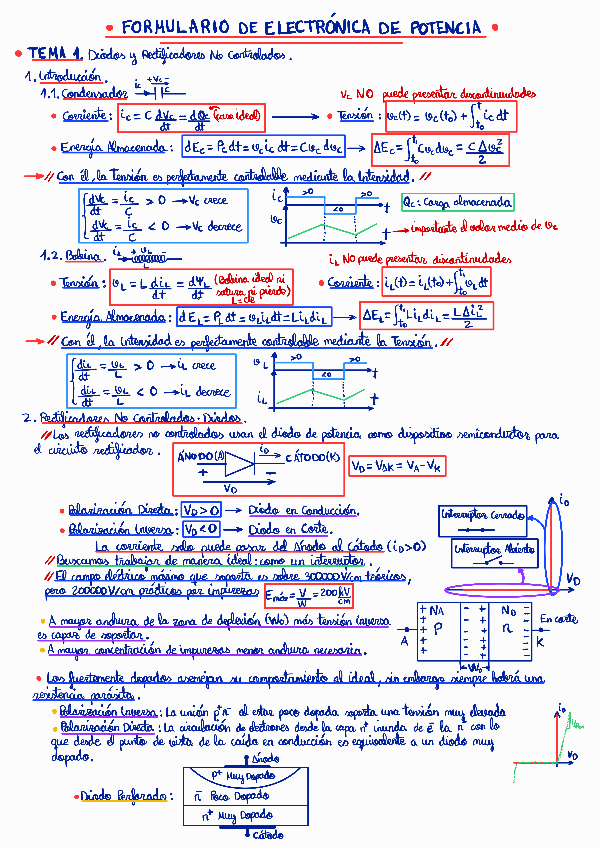 • FORMULARIO DE ELECTRÓNICA DE POTENCIA •
• TEMA 1. Diodos y Rectificadores No Controlados.
1. Introducción.
1.1. Condensador ic +Vc-
Vc NO puede presentar discontinuidades
• Corriente: ic = C dVc/dt = dQc/dt (caso ideal) → • Tensión: vc(t) = vc(t0) + ∫t0^t1 ic dt
• Energía Almacenada: dEc = Pc dt = vc ic dt = C vc dvc → ΔEc = ∫t0^t1 C vc dvc = C Δvc²/2
→ // Con él, la Tensión es perfectamente controlable mediante la Intensidad. //
dVc/dt = ic/C > 0 → Vc crece
dVc/dt = ic/C < 0 → Vc decrece
ic >0 >0 <0 t
vc t
Qc: Carga almacenada
→ importante el valor medio de vc
1.2. Bobina. iL + vL -
iL NO puede presentar discontinuidades
• Tensión: vL = L diL/dt = dΨL/dt (Bobina ideal ni satura ni pierde) L=cte
• Corriente: iL(t) = iL(t0) + ∫t0^t1 vL dt
• Energía Almacenada: dEL = PL dt = vL iL dt = L iL diL → ΔEL = ∫t0^t1 L iL diL = L Δ iL²/2
→ // Con él, la Intensidad es perfectamente controlable mediante la Tensión. //
diL/dt = vL/L > 0 → iL crece
diL/dt = vL/L < 0 → iL decrece
vL >0 >0 <0 t
iL t
2. Rectificadores No Controlados - Diodos.
// Los rectificadores no controlados usan el diodo de potencia como dispositivo semiconductor para
el circuito rectificador.
ÁNODO(A) iD CÁTODO(K)
VD
VD = VAK = VA - VK
• Polarización Directa: VD > 0 → Diodo en Conducción.
• Polarización Inversa: VD < 0 → Diodo en Corte.
La corriente solo puede pasar del Ánodo al Cátodo (iD>0)
Interruptor Cerrado
Interruptor Abierto
iD
VD
// Buscamos trabajar de manera ideal: como un interruptor.
// El campo eléctrico máximo que soporta es sobre 300000V/cm teóricos,
pero 200000V/cm prácticos por impurezas Emáx = V/W = 200 kV/cm
NA P
ND n
En corte
A K
WD
• A mayor anchura de la zona de deplexión (WD) más tensión inversa
es capaz de soportar.
• A mayor concentración de impurezas menor anchura necesaria.
• Los fuertemente dopados asemejan su comportamiento al ideal, sin embargo siempre habrá una
resistencia parásita.
• Polarización Inversa: La unión p⁺n⁻ al estar poco dopada soporta una tensión muy elevada
• Polarización Directa: La circulación de electrones desde la capa n⁺ inunda de e⁻ la n⁻ con lo
que desde el punto de vista de la caída en conducción es equivalente a un diodo muy
dopado.
iD
VD
• Diodo Perforado:
Ánodo
P⁺ Muy Dopado
n⁻ Poco Dopado
n⁺ Muy Dopado
Cátodo